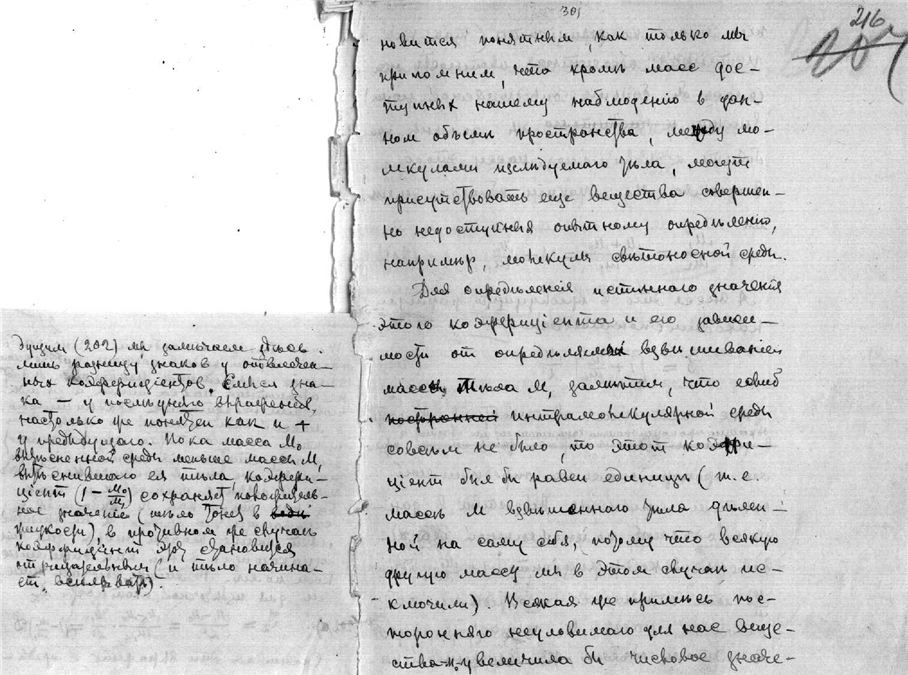 301
216
новится понятным, как только мы
припомним, что кроме масс дос-
тупных нашему наблюденію в дан-
ном объемѣ пространства, между мо-
лекулами изслѣдуемаго тѣла, могут
присутствовать еще вещества совершен-
но недоступныя опытному опредѣленію,
напримѣр, молекулы свѣтоносной среды.
Для опредѣленія истиннаго значенія
этого коэффиціента и его зависи-
мости от опредѣляемой взвѣшиваніем
массы тѣла М, замѣтим, что еслиб
посторонней интрамолекулярной среды
совсѣм не было, то этот коэффи-
ціент был бы равен единицѣ (т.е.
массѣ М взвѣшеннаго тѣла дѣлен-
ной на саму себя, потому что всякую
другую массу мы в этом случаѣ ис-
ключили). Всякая же примѣсь пос-
торонняго неуловимаго для нас веще-
ства М₀ увеличила бы числовое значе-
дущим (202) мы замѣчаем здѣсь
лишь разницу знаков у отвлечен-
ных коэффиціентов. Смысл зна-
ка — у послѣдняго выраженія,
настолько же понятен как и +
у предыдущаго. Пока масса М₀
вытѣсненной среды меньше массы М,
вытѣснившаго ея тѣла, коэффи-
ціент (1 − М₀/М) сохраняет положитель-
ное значеніе (тѣло тонет в
жидкости), в противном же случаѣ
коэффиціент этот становится
отрицательным (и тѣло начина-
ет всплывать)